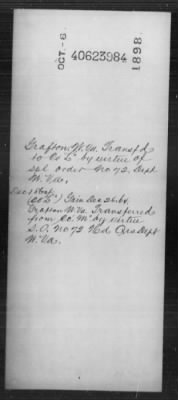 OCT.-6.
40623984
1898.
Grafton W.Va. Transf'd
to Co "L" by virtue of
spl order No 72, Dept
W. Va.
(Co "L")
Grafton W. Va. Transferred
from Co. "M" by virtue
S.O. No 72 Hd Qrs Dept
W. Va.